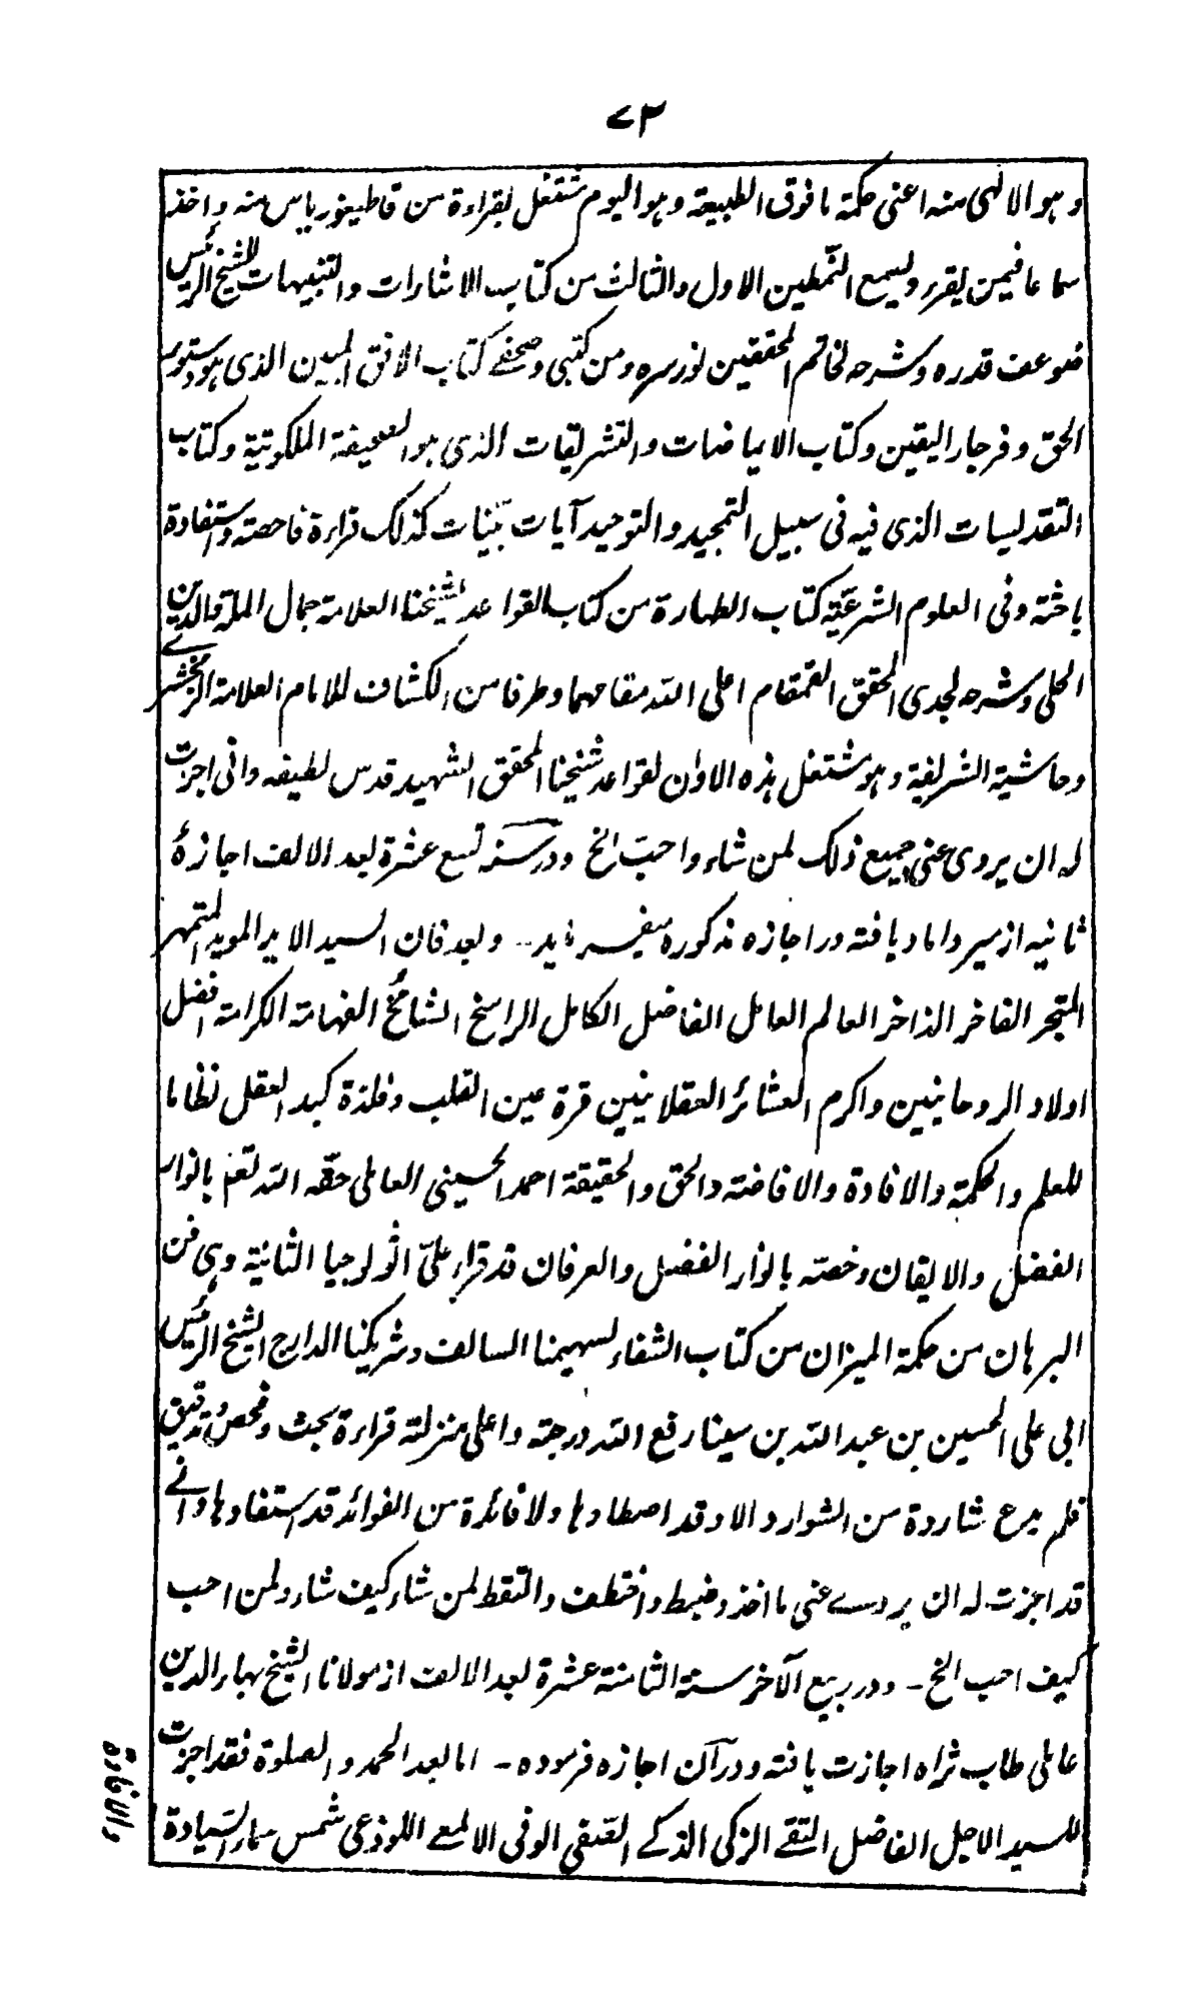 ۷۳
وهو الالهى منه اعنى حكمة ما فوق الطبيعة وهو اليوم مشتغل بقراءة من قاطيغورياس منه واخذ
سماعا فيمن يقرر ويسمع النمطين الاول والثالث من كتاب الاشارات والتنبيهات للشيخ الرئيس
ضوعف قدره وشرحه لخاتم المحققين نور سره ومن كتبى وصحفے كتاب الافق المبين الذى هو دستور
الحق وفرجار اليقين وكتاب الايماضات والتشريقات الذى هو الصحيفة الملكوتية وكتاب
التقديسات الذى فيه فى سبيل التمجيد والتوحيد آيات بينات كذلك قراءة فاحصة واستفادة
باحثة وفى العلوم الشرعية كتاب الطهارة من كتاب القواعد لشيخنا العلامة جمال الملة والدين
الحلى وشرحه لجدى المحقق القمقام اعلى الله مقامهما وطرفا من الكشاف للامام العلامة الزمخشرے
وحاشية الشريفية وهو مشتغل هذه الاوان لقواعد شيخنا المحقق الشهيد قدس لطيفه وانى اجزت
له ان يروى عنى جميع ذلك لمن شاء واحب الخ ودر سنہ تسع عشرة بعد الالف اجازهٔ
ثانيه از مير داماد يافته در اجازه مذكوره ميفرمايد .. وبعد فان السيد الايد المويد المتمهر
المتبحر الفاخر الذاخر العالم العامل الفاضل الكامل الراسخ الشامخ الفهامة الكرامة افضل
اولاد الروحانيين واكرم العشائر العقلانيين قرة عين القلب وفلذة كبد العقل نظاما
للعلم والحكمة والافادة والافاضة والحق والحقيقة احمد الحسينى العاملى حفه الله تعم بانوار
الفضل والايقان وخصه بانوار الفضل والعرفان قد قراء علىّ اثولوجيا الثانية وهى فن
البرهان من حكمة الميزان من كتاب الشفاء لسهيمنا السالف وشريكنا الدارج الشيخ الرئيس
ابى على الحسين بن عبد الله بن سينا رفع الله درجته واعلى منزلته قراءة بحث وفحص وتدقيق
فلم يدع شاردة من الشوارد الا وقد اصطادها ولا فائدة من الفوائد قد استفادها وانے
قد اجزت له ان يروے عنى ما اخذ وضبط واختطف والتقط لمن شاء كيف شاء ولمن احب
كيف احب الخ - ودر ربيع الآخر سنة الثامنة عشرة بعد الالف از مولانا الشيخ بهاء الدين
عاملى طاب ثراه اجازت يافته ودرآن اجازه فرموده - اما بعد الحمد والصلوة فقد اجزت
للسيد الاجل الفاضل التقے الزكى الذكے الصفى الوفى الالمعے اللوذعى شمس سماء السيادة
والافادة